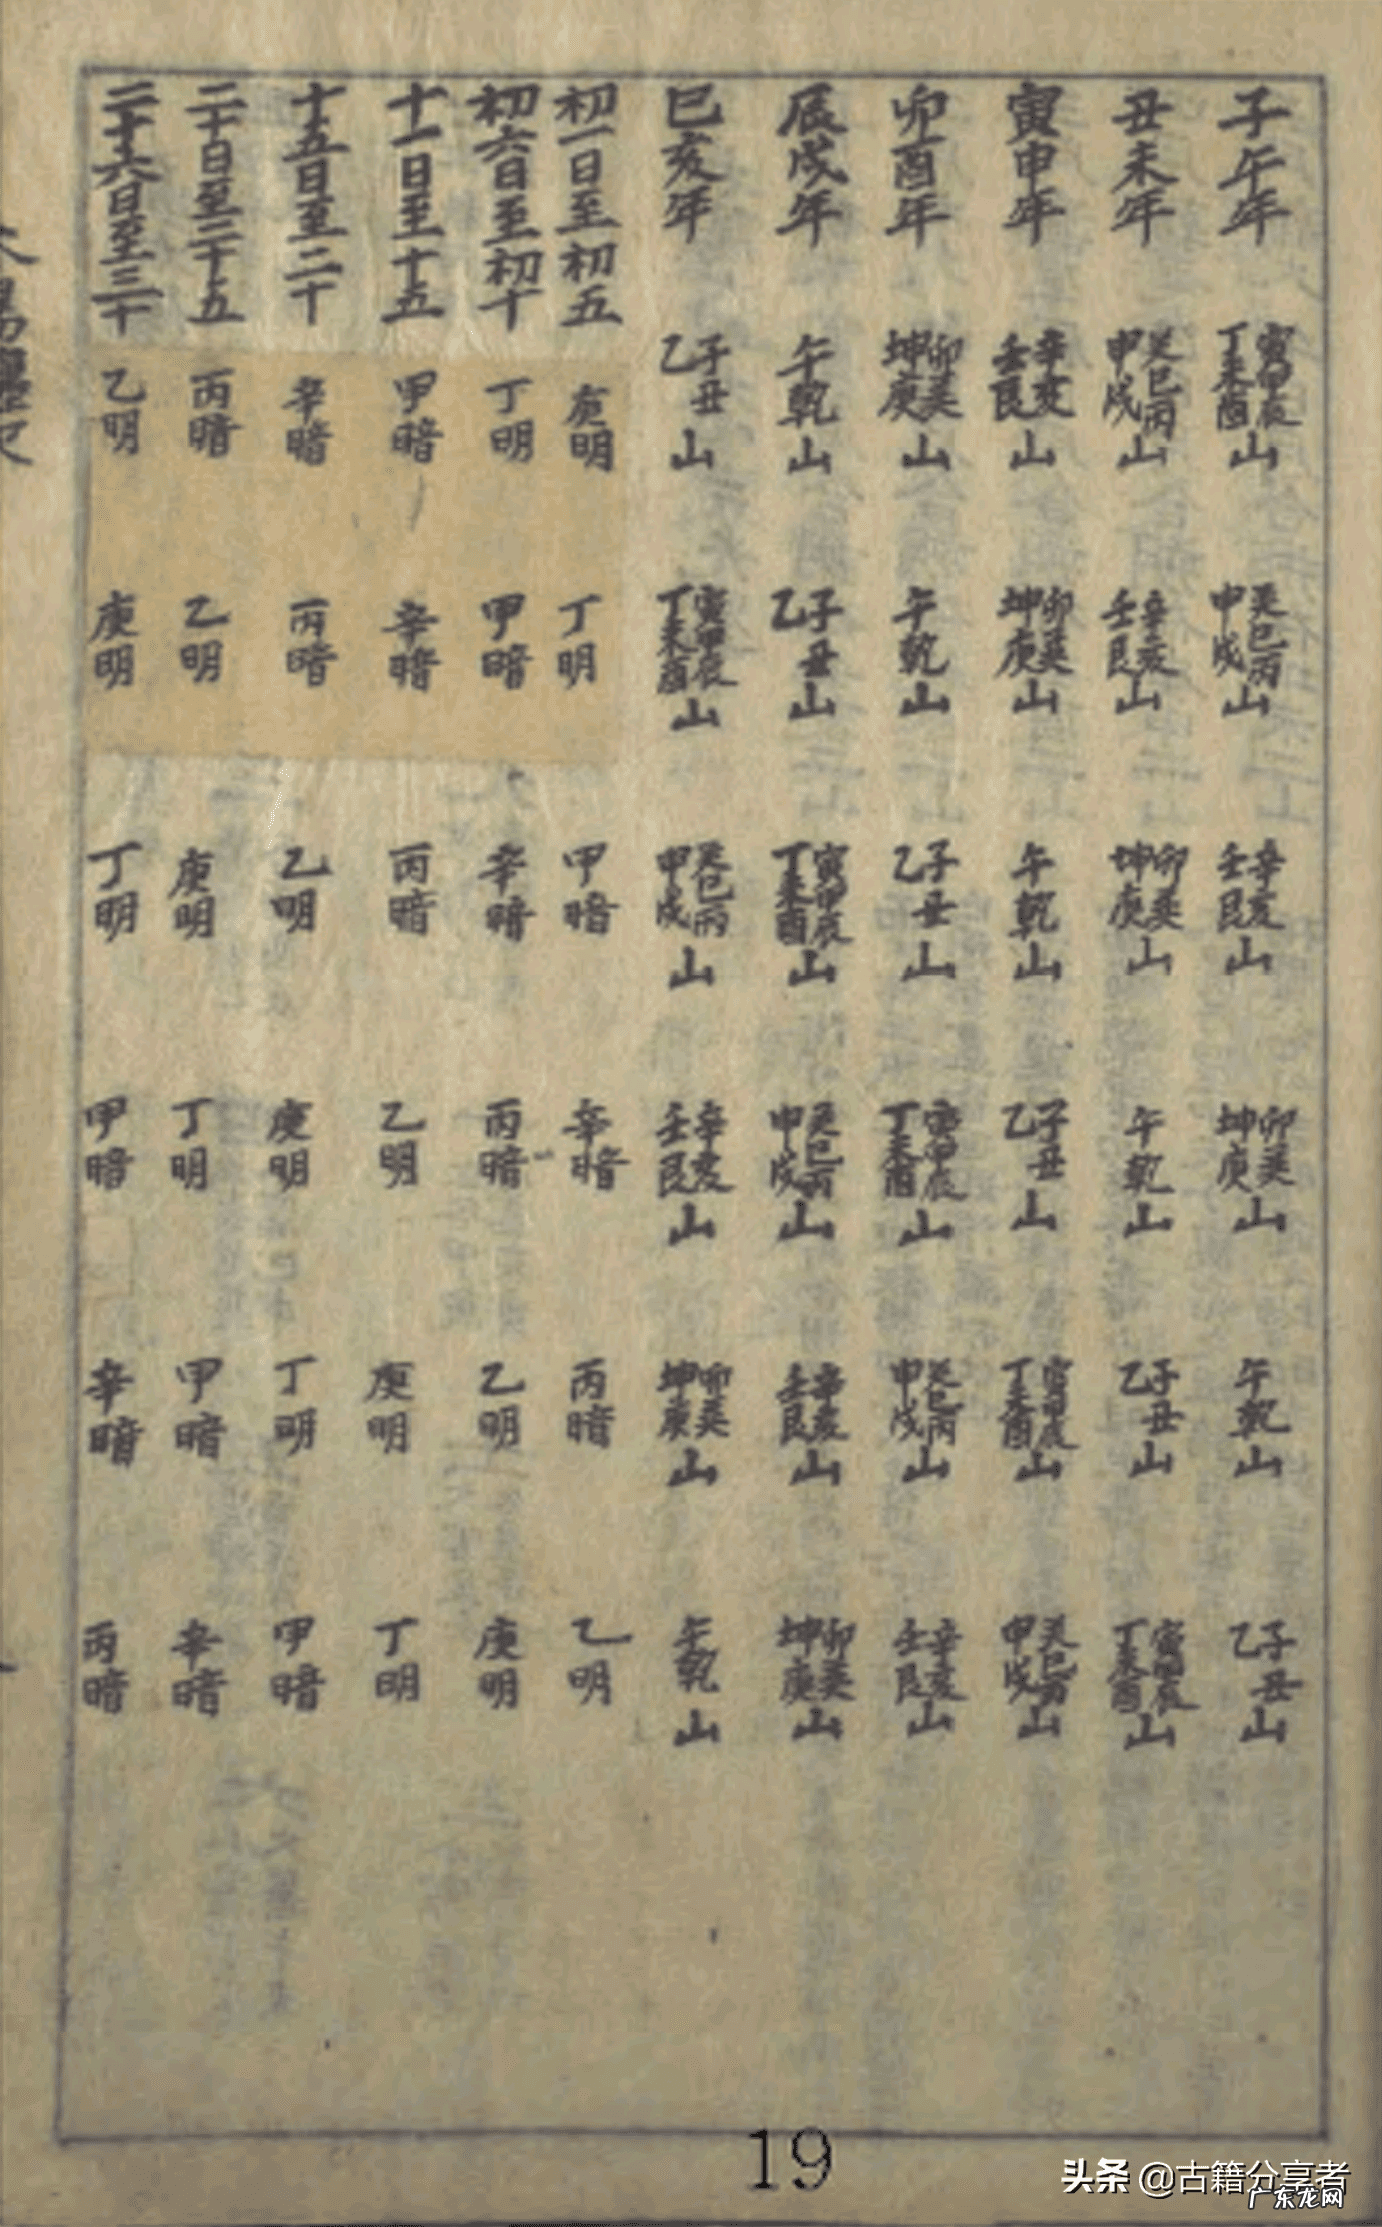 子午年 寅甲辰丁未酉山 癸巳丙申戌山 辛亥壬艮山 卯巽坤庚山 午乾山 子丑乙山
丑未年 癸巳丙申戌山 辛亥壬艮山 卯巽坤庚山 午乾山 子丑乙山 寅甲辰丁未酉山
寅申年 辛亥壬艮山 卯巽坤庚山 午乾山 子丑乙山 寅甲辰丁未酉山 癸巳丙申戌山
卯酉年 卯巽坤庚山 午乾山 子丑乙山 寅甲辰丁未酉山 癸巳丙申戌山 辛亥壬艮山
辰戌年 午乾山 子丑乙山 寅甲辰丁未酉山 癸巳丙申戌山 辛亥壬艮山 卯巽坤庚山
巳亥年 子丑乙山 寅甲辰丁未酉山 癸巳丙申戌山 辛亥壬艮山 卯巽坤庚山 午乾山
初一日至初五 庚明 丁明 甲暗 辛暗 丙暗 乙明
初六日至初十 丁明 甲暗 辛暗 丙暗 乙明 庚明
十一日至十五 甲暗 辛暗 丙暗 乙明 庚明 丁明
十五日至二十 辛暗 丙暗 乙明 庚明 丁明 甲暗
二十日至二十五 丙暗 乙明 庚明 丁明 甲暗 辛暗
二十六日至三十 乙明 庚明 丁明 甲暗 辛暗 丙暗
19
头条 @古籍分享者
广东龙网